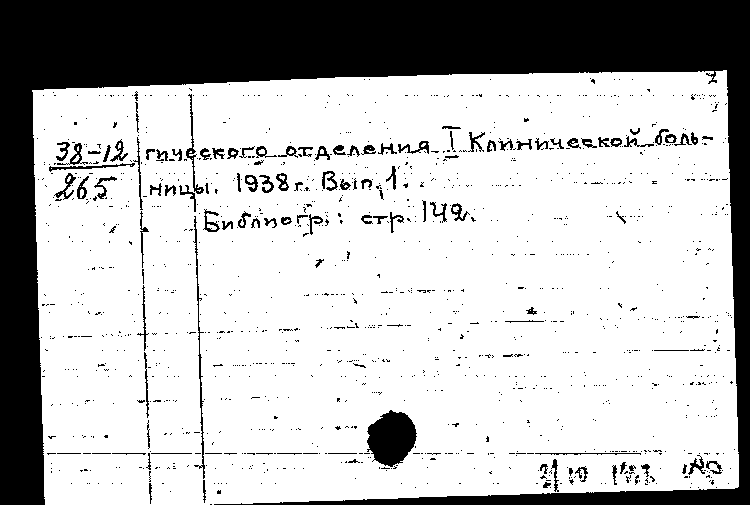 2
38-12 гического отделения I Клинической боль-
265 ницы. 1938 г. Вып. 1.
Библиогр.: стр. 142.